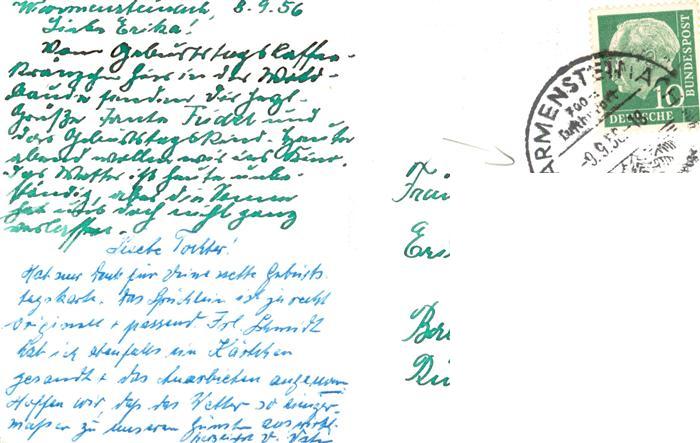 Warmensteinach, 8.9.56
Liebe Erika!
Vom Geburtstagskaffee-
kränzchen hier in der Wald-
baude senden Dir herzl.
Grüße Tante Friedel und
das Geburtstagskind. Heute
abend wollen wir ins Kino.
Das Wetter ist heute unbe-
ständig, aber die Sonne
hat uns doch nicht ganz
verlassen.
Liebe Tochter!
Hab nur Dank für Deine nette Geburts
tagskarte. Das Sprüchlein ist ja recht
originell + passend Frl. Schmidt
hab ich ebenfalls ein Kärtchen
gesandt + das
Hoffen wir, daß das Wetter so einiger-
maßen zu unseren Gunsten
Herzlichst D. Vati
DEUTSCHE BUNDESPOST
10
ARMENSTEINAC
-9.9.56-18
Luftkurort